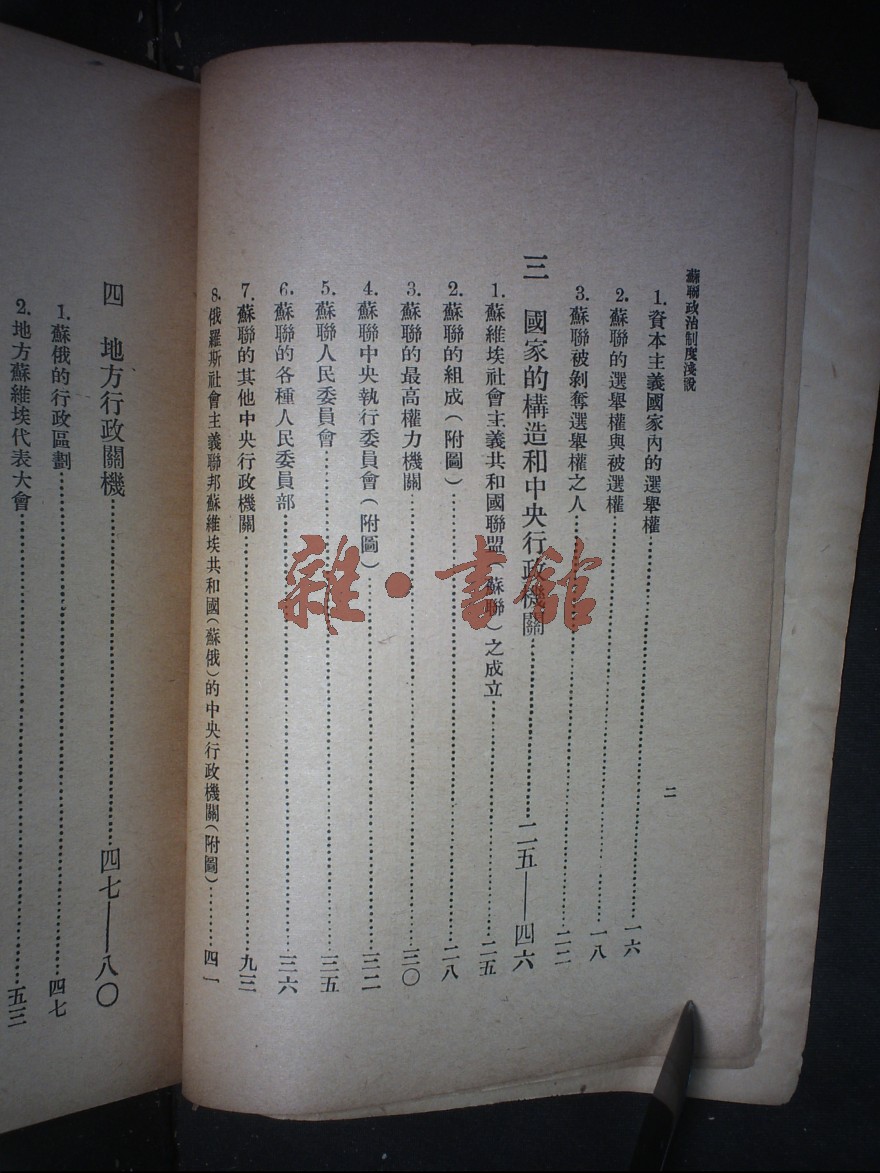 蘇聯政治制度淺說
二
1. 資本主義國家內的選舉權……一六
2. 蘇聯的選舉權與被選權……一八
3. 蘇聯被剝奪選舉權之人……二二
三 國家的構造和中央行政機關……二五——四六
1. 蘇維埃社會主義共和國聯盟(蘇聯)之成立……二五
2. 蘇聯的組成(附圖)……二八
3. 蘇聯的最高權力機關……三〇
4. 蘇聯中央執行委員會(附圖)……三二
5. 蘇聯人民委員會……三五
6. 蘇聯的各種人民委員部……三六
7. 蘇聯的其他中央行政機關……九三
8. 俄羅斯社會主義聯邦蘇維埃共和國(蘇俄)的中央行政機關(附圖)……四一
四 地方行政關機……四七——八〇
1. 蘇俄的行政區劃……四七
2. 地方蘇維埃代表大會……五三
雜·書館